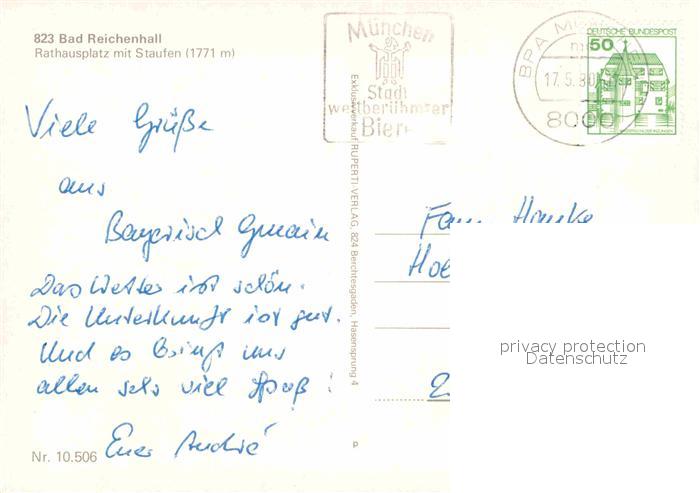 823 Bad Reichenhall
Rathausplatz mit Staufen (1771 m)
München
Stadt
weltberühmter
Biere
BPA MÜNCHEN
17.5.80
8000
DEUTSCHE BUNDESPOST
50
Viele Grüße
aus
Bayerisch Gmain
Das Wetter ist schön.
Die Unterkunft ist gut.
Und es bringt uns
allen sehr viel Spaß!
Euer André
Nr. 10.506
Exklusivverkauf RUPERTI-VERLAG, 824 Berchtesgaden, Hasensprung 4
P
Fam. Hanke
privacy protection
Datenschutz